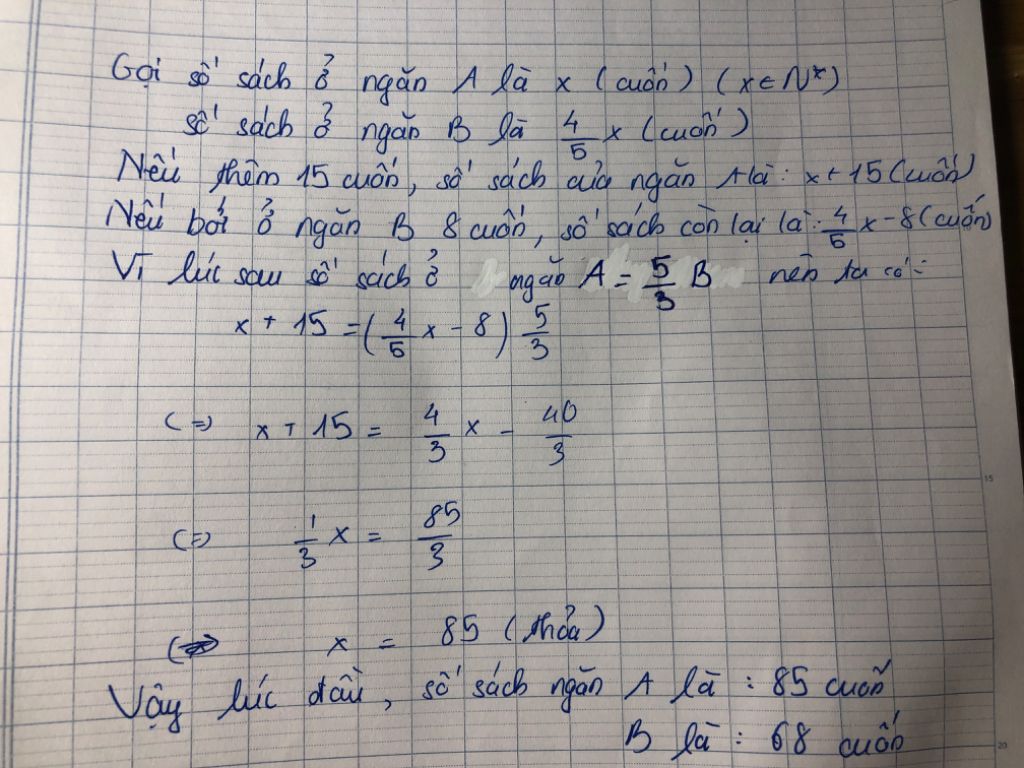 Gọi số sách ở ngăn A là x (cuốn) (x ∈ N*)
số sách ở ngăn B là 4/5 x (cuốn)
Nếu thêm 15 cuốn, số sách của ngăn A là: x + 15 (cuốn)
Nếu bớt ở ngăn B 8 cuốn, số sách còn lại là: 4/5 x - 8 (cuốn)
Vì lúc sau số sách ở ngăn A = 5/3 B nên ta có:
x + 15 = (4/5 x - 8) 5/3
(=) x + 15 = 4/3 x - 40/3
(=) 1/3 x = 85/3
x = 85 (thỏa)
Vậy lúc đầu, số sách ngăn A là : 85 cuốn
B là : 68 cuốn
15
20